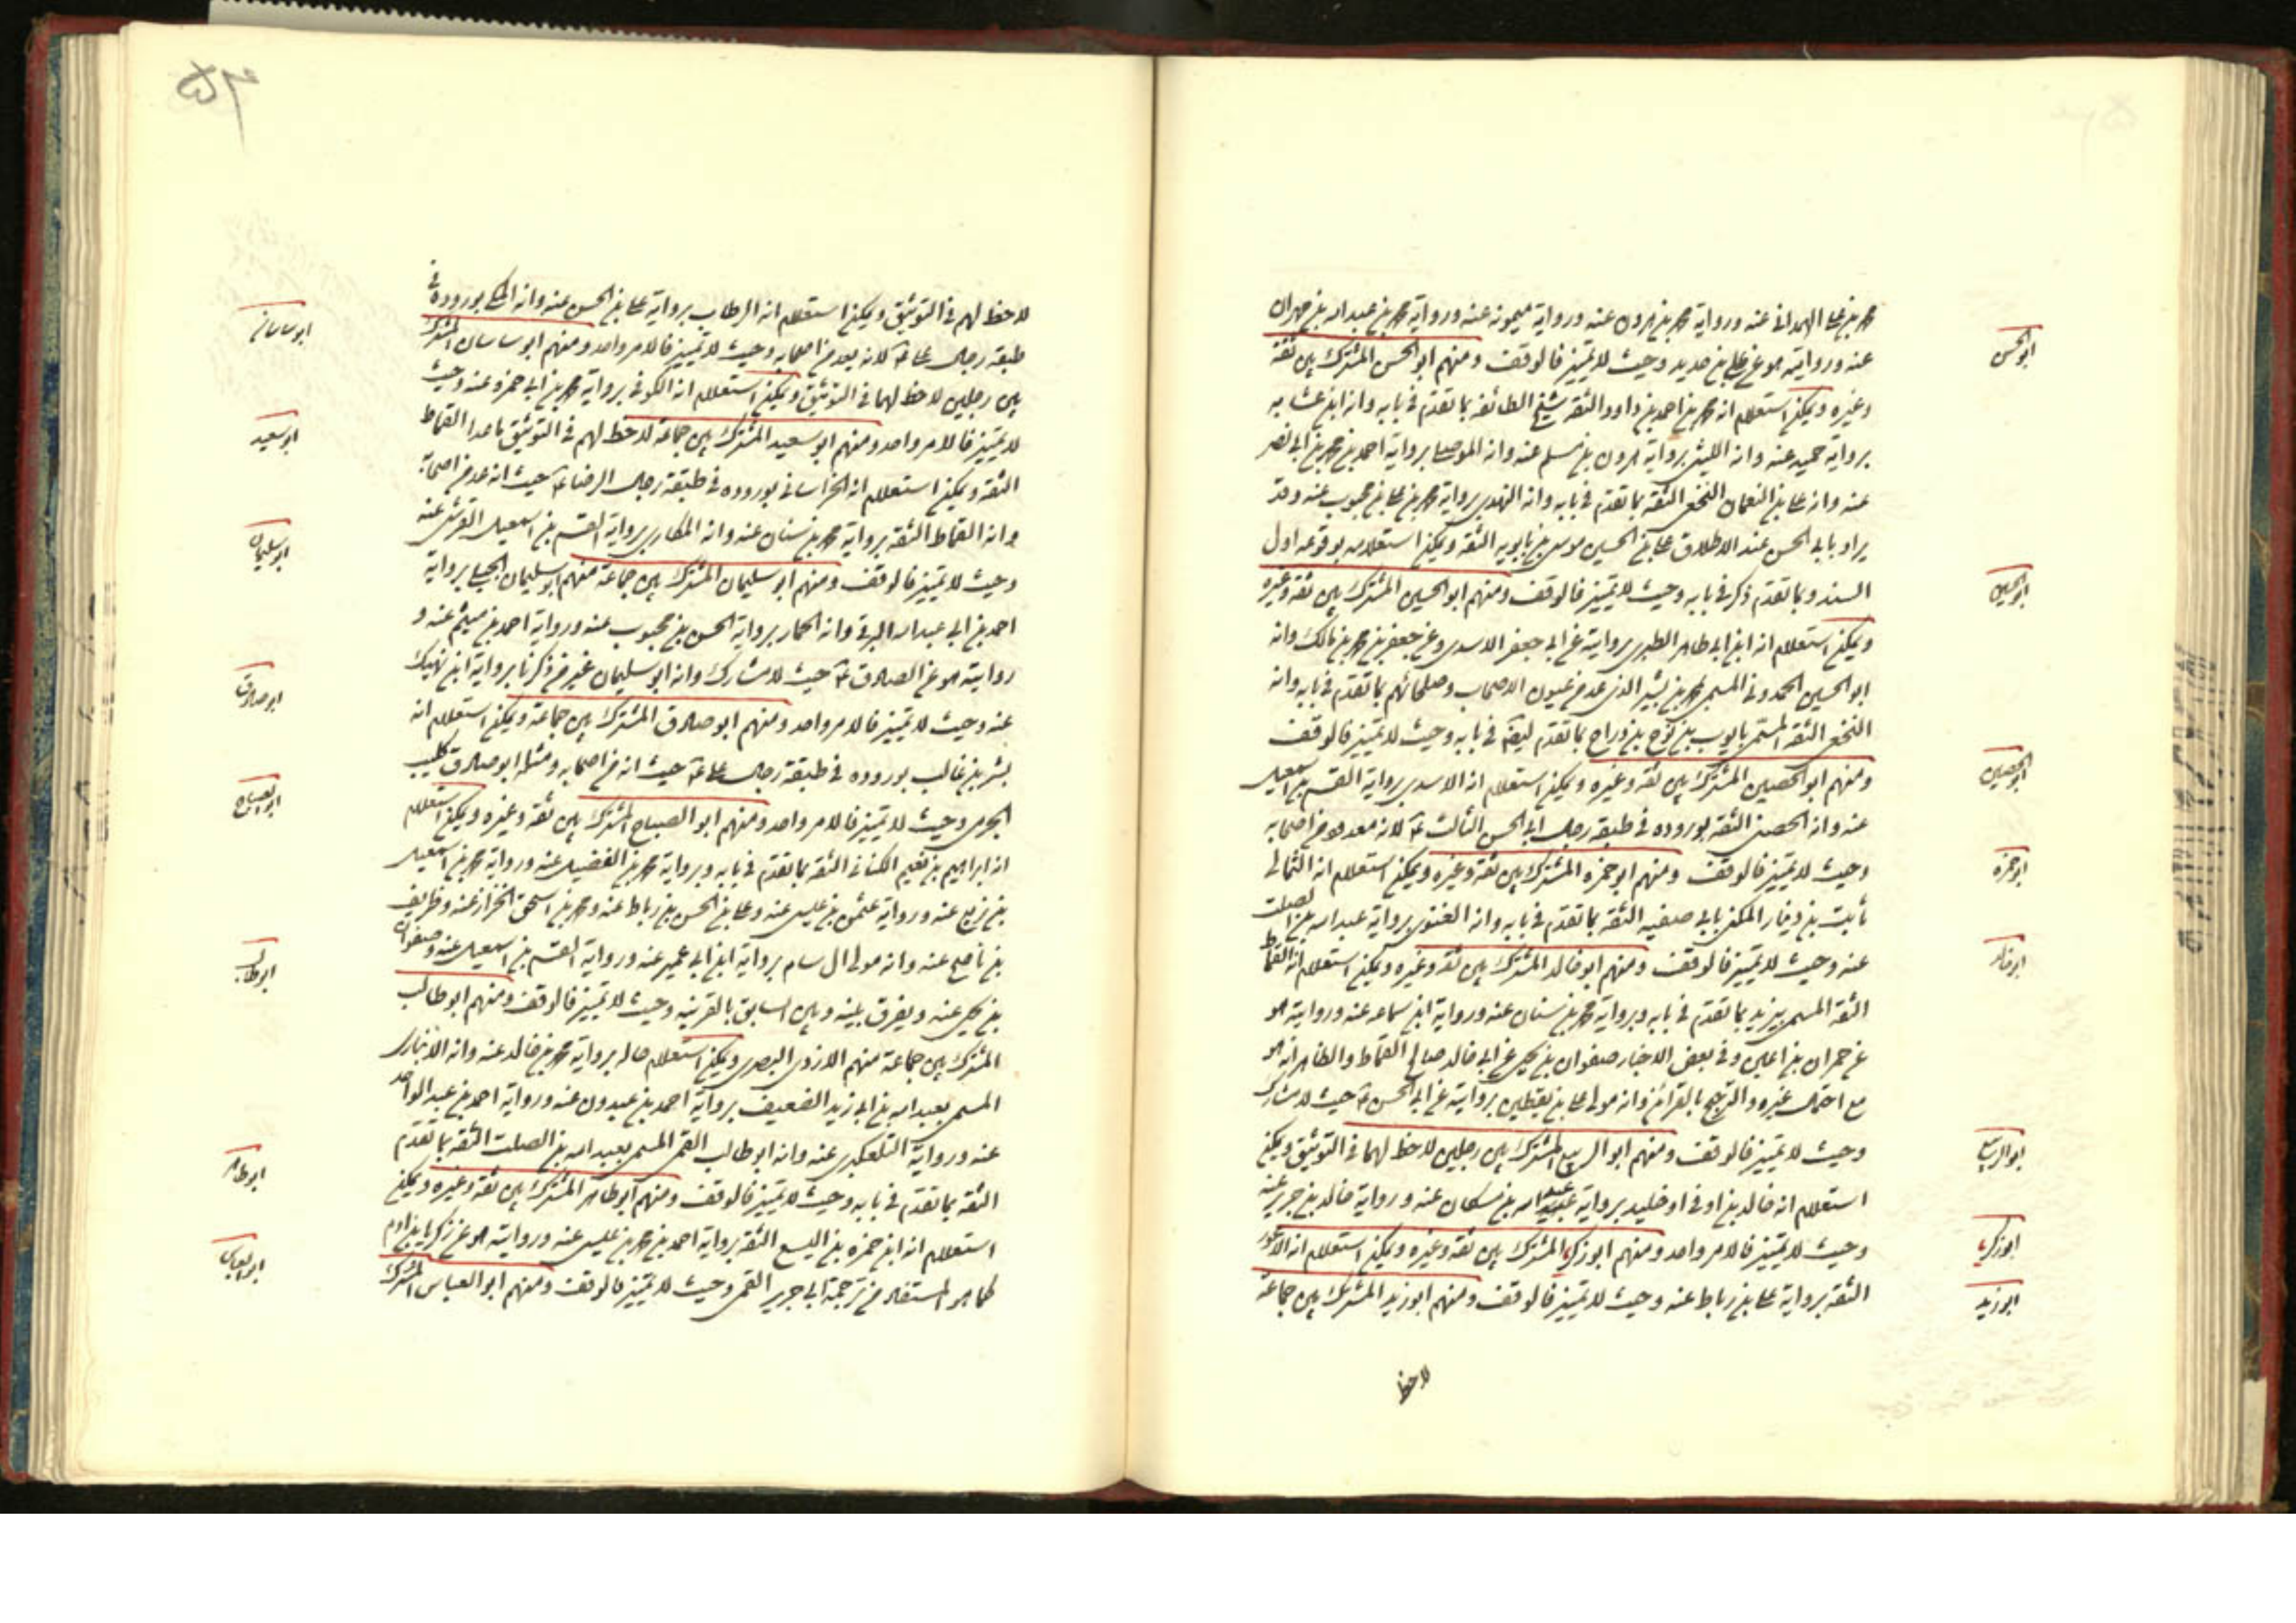 محمد بن علي الهمداني عنه ورواية محمد بن هرون عنه ورواية ميمونه عنه ورواية محمد بن عبد الله بن مهران
عنه وروايته هو عن علي بن حديد وحيث لا تمييز فالوقف ومنهم ابو الحسن المشترك بين ثقة
وغيره ويمكن استعلام انه محمد بن احمد بن داود الثقة شيخ الطائفه بما تقدم في بابه وانه ابن عشابه
برواية حميد عنه وانه الليثي برواية هرون بن مسلم عنه وانه الموصلي برواية احمد بن محمد بن ابي نصر
عنه وانه علي بن النعمان النخعي الثقة بما تقدم في بابه وانه النهدي برواية محمد بن علي بن محبوب عنه وقد
يراد بابي الحسن عند الاطلاق علي بن الحسين موسى بن بابويه الثقه ويمكن استعلامه بوقوعه اول
السند وبما تقدم ذكر في بابه وحيث لا تمييز فالوقف ومنهم ابو الحسين المشترك بين ثقه وغيره
ويمكن استعلام انه ابن ابي طاهر الطبري برواية عن ابي جعفر الاسدي وعن جعفر بن محمد بن مالك وانه
ابو الحسين الحمدوني المسمى محمد بن بشير الذي عد من عيون الاصحاب وصلحائهم بما تقدم في بابه وانه
النخعي الثقه المسمى بايوب بن نوح بن دراج بما تقدم ليقه في بابه وحيث لا تمييز فالوقف
ومنهم ابو الحصين المشترك بين ثقه وغيره ويمكن استعلام انه الاسدي برواية القسم بن اسمعيل
عنه وانه الحصني الثقه بوروده في طبقه رجال ابي الحسن الثالث ع لانه معدود من اصحابه
وحيث لا تمييز فالوقف ومنهم ابو حمزه المشترك بين ثقه وغيره ويمكن استعلام انه الثمالي
ثابت بن دينار المكنى بابي صفيه الثقه بما تقدم في بابه وانه الغنوي برواية عبد الله بن الصلت
عنه وحيث لا تمييز فالوقف ومنهم ابو خالد المشترك بين ثقه وغيره ويمكن استعلام انه القماط
الثقه المسمى بيزيد بما تقدم في بابه وبرواية محمد بن سنان عنه ورواية ابن سماعه عنه وروايته هو
عن حمران بن اعين وفي بعض الاخبار صفوان بن يحيى عن ابي خالد صالح القماط والظاهر انه هو
مع احتمال غيره والترجيح بالقرائن وانه مولى علي بن يقطين برواية عن ابي الحسن ع حيث لا مشارك
وحيث لا تمييز فالوقف ومنهم ابو الربيع المشترك بين رجلين لا حظ لهما في التوثيق ويمكن
استعلام انه خالد بن اوفى او خليد برواية عبد الله بن مسكان عنه ورواية خالد بن جرير عنه
وحيث لا تمييز فالامر واحد ومنهم ابو زكريا المشترك بين ثقه وغيره ويمكن استعلام انه الاعور
الثقه برواية علي بن رباط عنه وحيث لا تمييز فالوقف ومنهم ابو زيد المشترك بين جماعة
لا حظ
ابو الحسن
ابو الحسين
ابو الحصين
ابو حمزه
ابو خالد
ابو الربيع
ابو زكريا
ابو زيد
لا حظ لهم في التوثيق ويمكن استعلام انه الرطاب برواية علي بن الحسن عنه وانه المكي بوروده في
طبقة رجال علي ع لانه يعد من اصحابه وحيث لا تمييز فالامر واحد ومنهم ابو ساسان المشترك
بين رجلين لا حظ لهما في التوثيق ويمكن استعلام انه الكوفي برواية محمد بن ابي حمزه عنه وحيث
لا تمييز فالامر واحد ومنهم ابو سعيد المشترك بين جماعة لا حظ لهم في التوثيق ما عدا القماط
الثقه ويمكن استعلام انه الخراساني بوروده في طبقة رجال الرضا ع حيث انه عد من اصحابه
وانه القماط الثقه برواية محمد بن سنان عنه وانه المكاري برواية القسم بن اسمعيل القرشي عنه
وحيث لا تمييز فالوقف ومنهم ابو سليمان المشترك بين جماعة منهم ابو سليمان الجبلي برواية
احمد بن ابي عبد الله البرقي وانه الحمار برواية الحسن بن محبوب عنه ورواية احمد بن ميثم عنه و
روايته هو عن الصادق ع حيث لا مشارك وانه ابو سليمان غير من ذكرنا برواية ابن نهيك
عنه وحيث لا تمييز فالامر واحد ومنهم ابو صادق المشترك بين جماعة ويمكن استعلام انه
بشر بن غالب بوروده في طبقة رجال علي ع حيث انه من اصحابه ومثله ابو صادق كليب
الجرمي وحيث لا تمييز فالامر واحد ومنهم ابو الصباح المشترك بين ثقه وغيره ويمكن استعلام
انه ابراهيم بن نعيم الكناني الثقه بما تقدم في بابه وبرواية محمد بن الفضيل عنه ورواية محمد بن اسمعيل
بن بزيع عنه ورواية عثمن بن عيسى عنه وعلي بن الحسن بن رباط عنه ومحمد بن اسحق الخزاز عنه وظريف
بن ناصح عنه وانه مولى ال سام برواية ابن ابي عمير عنه ورواية القسم بن اسمعيل عنه وصفوان
بن يحيى عنه ويفرق بينه وبين السابق بالقرينه وحيث لا تمييز فالوقف ومنهم ابو طالب
المشترك بين جماعة منهم الازدي البصري ويمكن استعلام حاله برواية محمد بن خالد عنه وانه الانباري
المسمى بعبد الله بن ابي زيد الضعيف برواية احمد بن عبدون عنه ورواية احمد بن عبد الواحد
عنه ورواية التلعكبري عنه وانه ابو طالب القمي المسمى بعبد الله بن الصلت الثقه بما تقدم
الثقه بما تقدم في بابه وحيث لا تمييز فالوقف ومنهم ابو طاهر المشترك بين ثقه وغيره ويمكن
استعلام انه ابن حمزه بن اليسع الثقه برواية احمد بن محمد بن عيسى عنه وروايته هو عن زكريا بن ادم
كما هو المستفاد من ترجمة ابي جرير القمي وحيث لا تمييز فالوقف ومنهم ابو العباس المشترك
ابو ساسان
ابو سعيد
ابو سليمان
ابو صادق
ابو الصباح
ابو طالب
ابو طاهر
ابو العباس